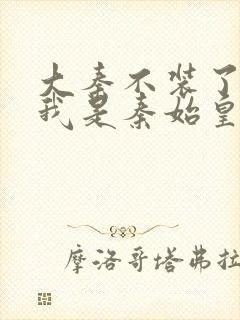 大秦不装了
我是秦始皇
摩洛哥塔弗拉